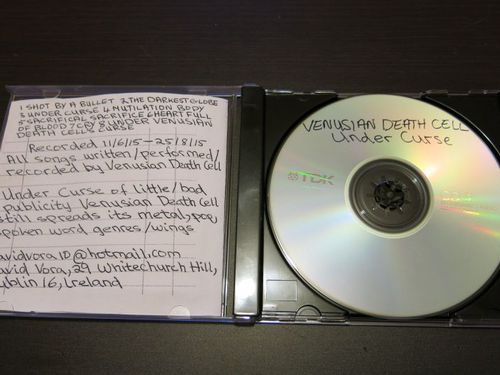 1 SHOT BY A BULLET 2 THE DARKEST GLOBE
3 UNDER CURSE 4 MUTILATION BODY
5 SACRIFICIAL SACRIFICE 6 HEART FULL
OF BLOOD 7 CRY 8 UNDER VENUSIAN
DEATH CELL'S CURSE
Recorded 11/6/15-25/8/15
All songs written/performed/
recorded by Venusian Death Cell
Under Curse of little/bad
publicity Venusian Death Cell
still spreads its metal, pop,
spoken word genres/wings
davidvora10@hotmail.com
David Vora, 29 Whitechurch Hill,
Dublin 16, Ireland
VENUSIAN DEATH CELL
Under Curse
TDK